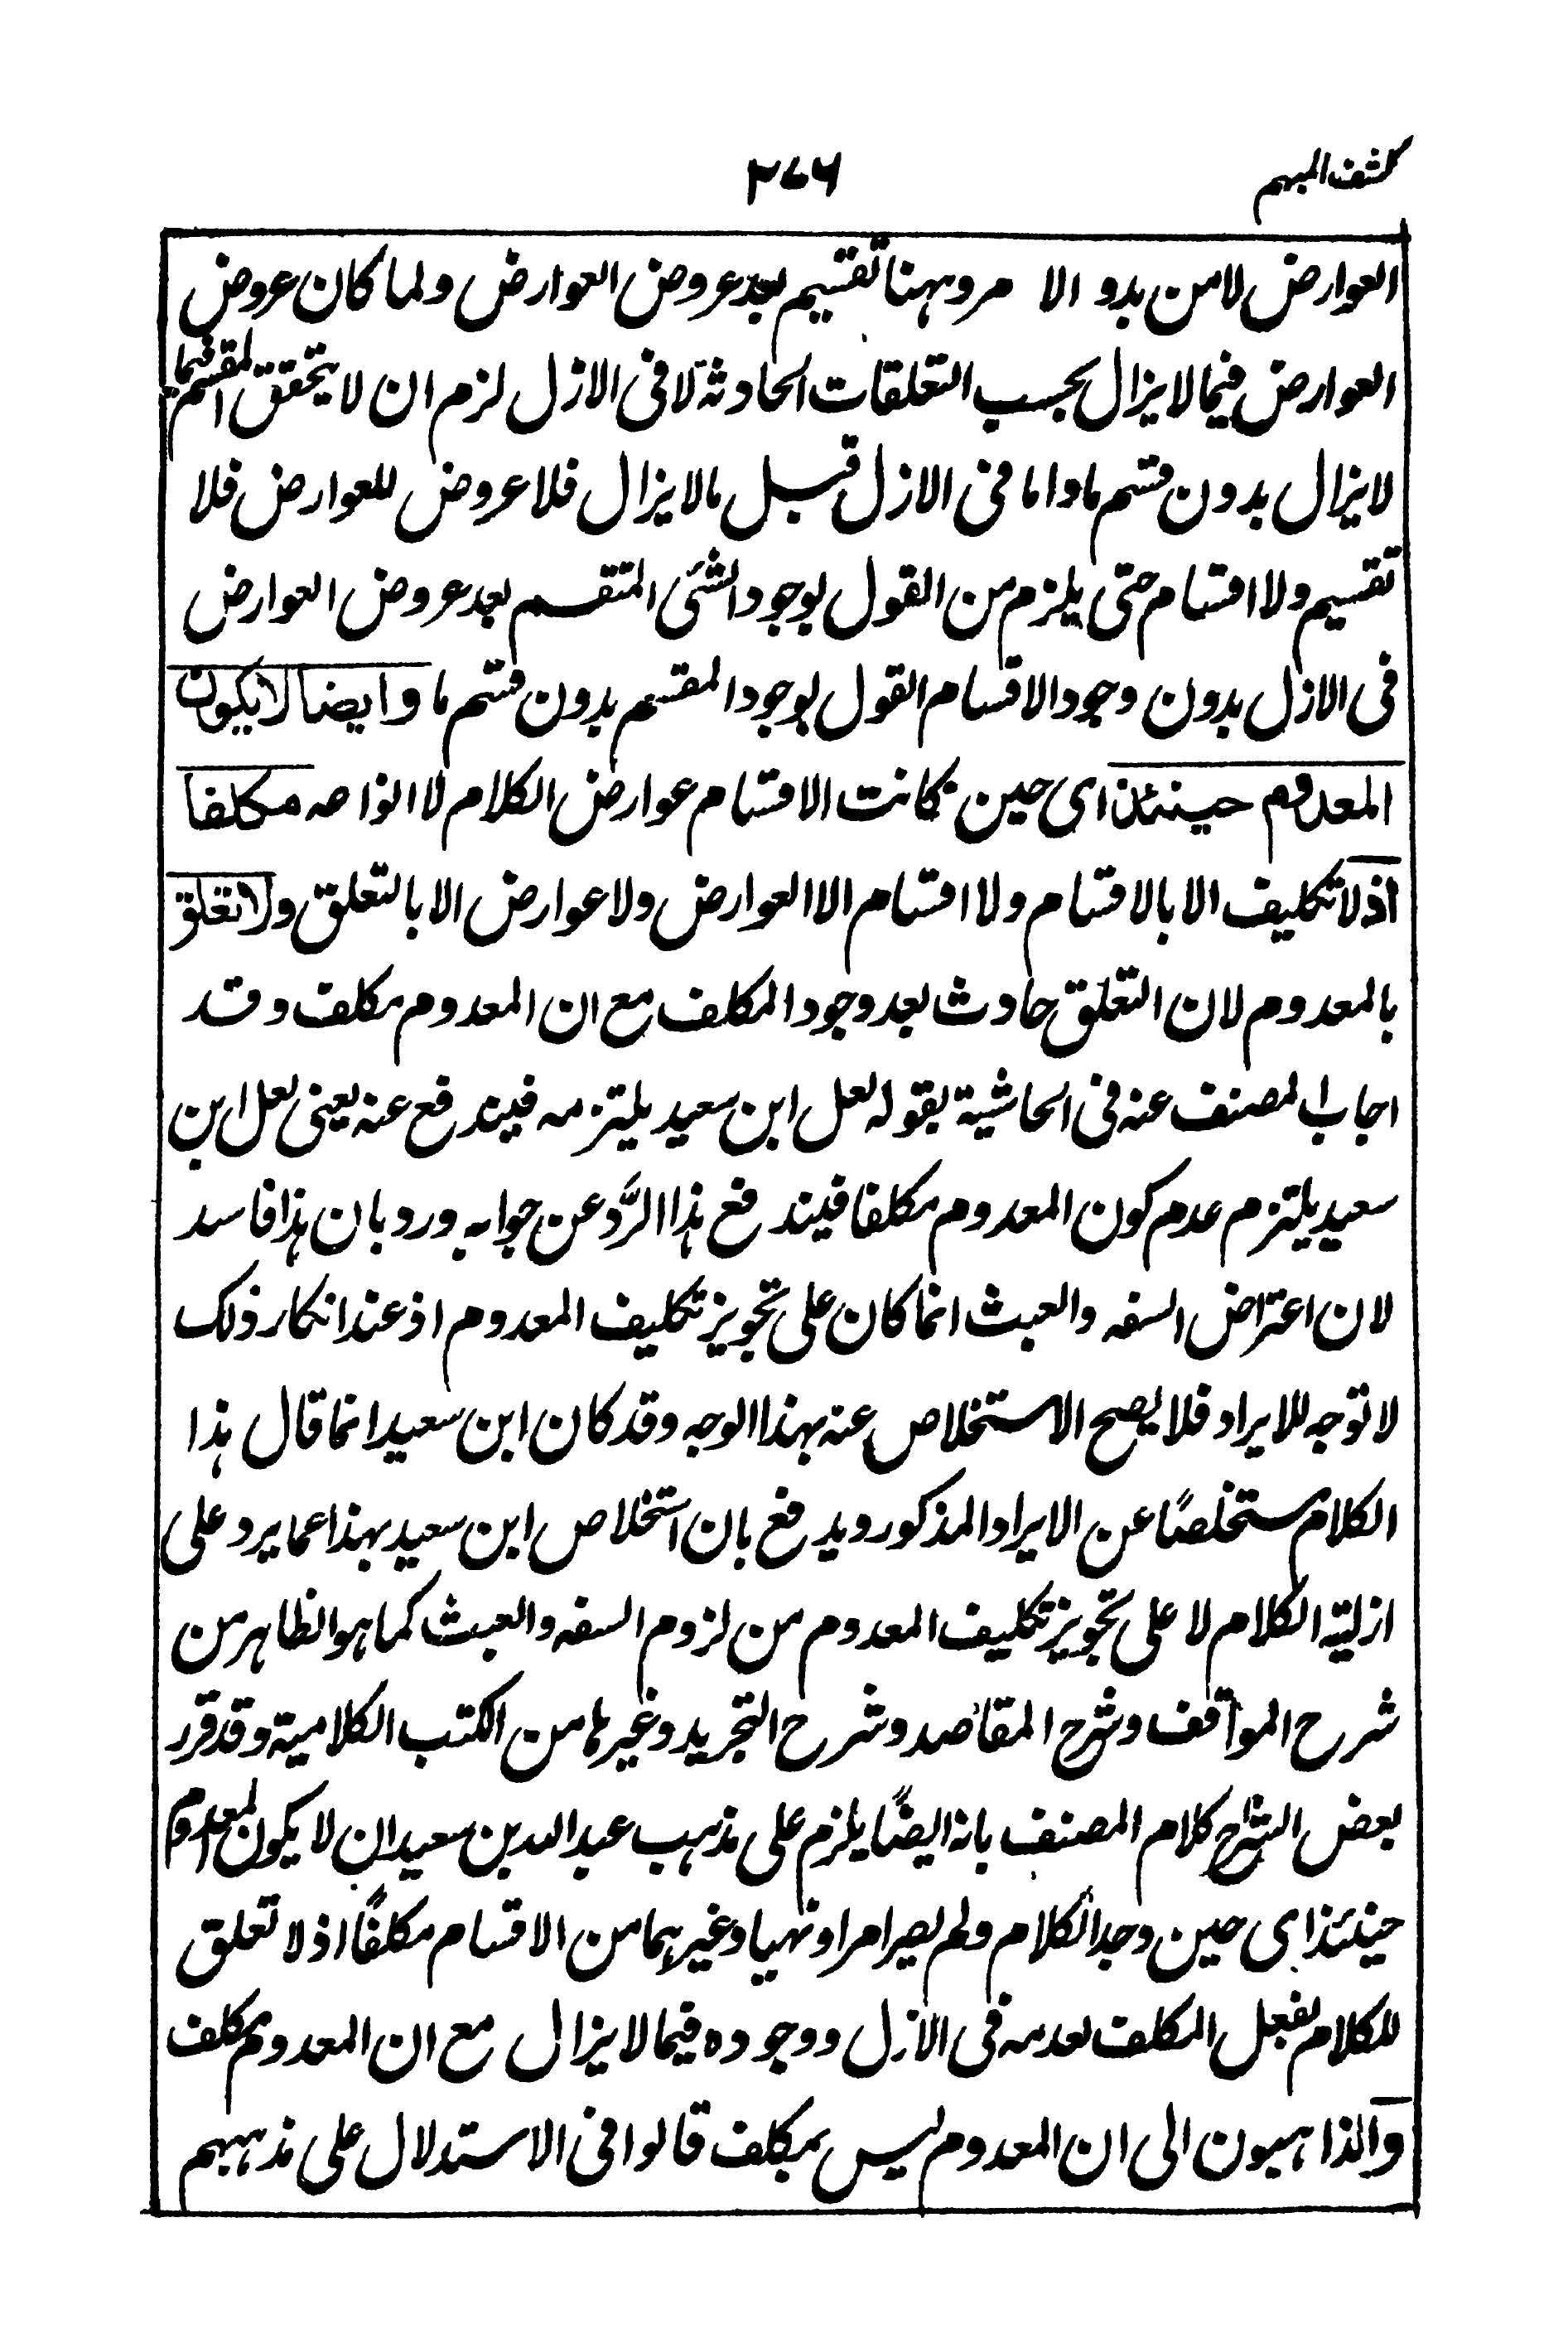 كشف المبهم
٢٧٦
العوارض لا من بدو الا مر وههنا تقسيم بعد عروض العوارض ولما كان عروض
العوارض فيما لا يزال بحسب التعلقات الحادثة لا فى الازل لزم ان لا يتحقق المقسم فيما
لا يزال بدون قسم ما واما فى الازل قبل ما لا يزال فلا عروض للعوارض فلا
تقسيم ولا اقسام حتى يلزم من القول بوجود الشئ المنقسم بعد عروض العوارض
فى الازل بدون وجود الاقسام القول بوجود المقسم بدون قسم ما وايضا لا يكون
المعدوم حينئذ اى حين كانت الاقسام عوارض الكلام لا انواعه مكلفا
اذ لا تكليف الا بالاقسام ولا اقسام الا العوارض ولا عوارض الا بالتعلق ولا تعلق
بالمعدوم لان التعلق حادث بعد وجود المكلف مع ان المعدوم مكلف وقد
اجاب المصنف عنه فى الحاشية بقوله لعل ابن سعيد يلتزمه فيندفع عنه يعنى لعل ابن
سعيد يلتزم عدم كون المعدوم مكلفا فيندفع هذا الرَّد عن جوابه ورد بان هذا فاسد
لان اعتراض السفه والعبث انما كان على تجويز تكليف المعدوم اذ عند انكار ذلك
لا توجه للايراد فلا يصح الاستخلاص عنه بهذا الوجه وقد كان ابن سعيد انما قال هذا
الكلام مستخلصًا عن الايراد المذكور ويدفع بان استخلاص ابن سعيد بهذا عما يرد على
ازلية الكلام لا على تجويز تكليف المعدوم من لزوم السفه والعبث كما هو الظاهر من
شرح المواقف وشرح المقاصد وشرح التجريد وغيرها من الكتب الكلامية وقد قرر
بعض الشراح كلام المصنف بانه ايضًا يلزم على مذهب عبد الله بن سعيد ان لا يكون المعدوم
حينئذ اى حين وجد الكلام ولم يصر امرا ونهيا وغيرهما من الاقسام مكلفًا اذ لا تعلق
للكلام بفعل المكلف لعدمه فى الازل ووجوده فيما لا يزال مع ان المعدوم مكلف
والذاهبون الى ان المعدوم ليس بمكلف قالوا فى الاستدلال على مذهبهم